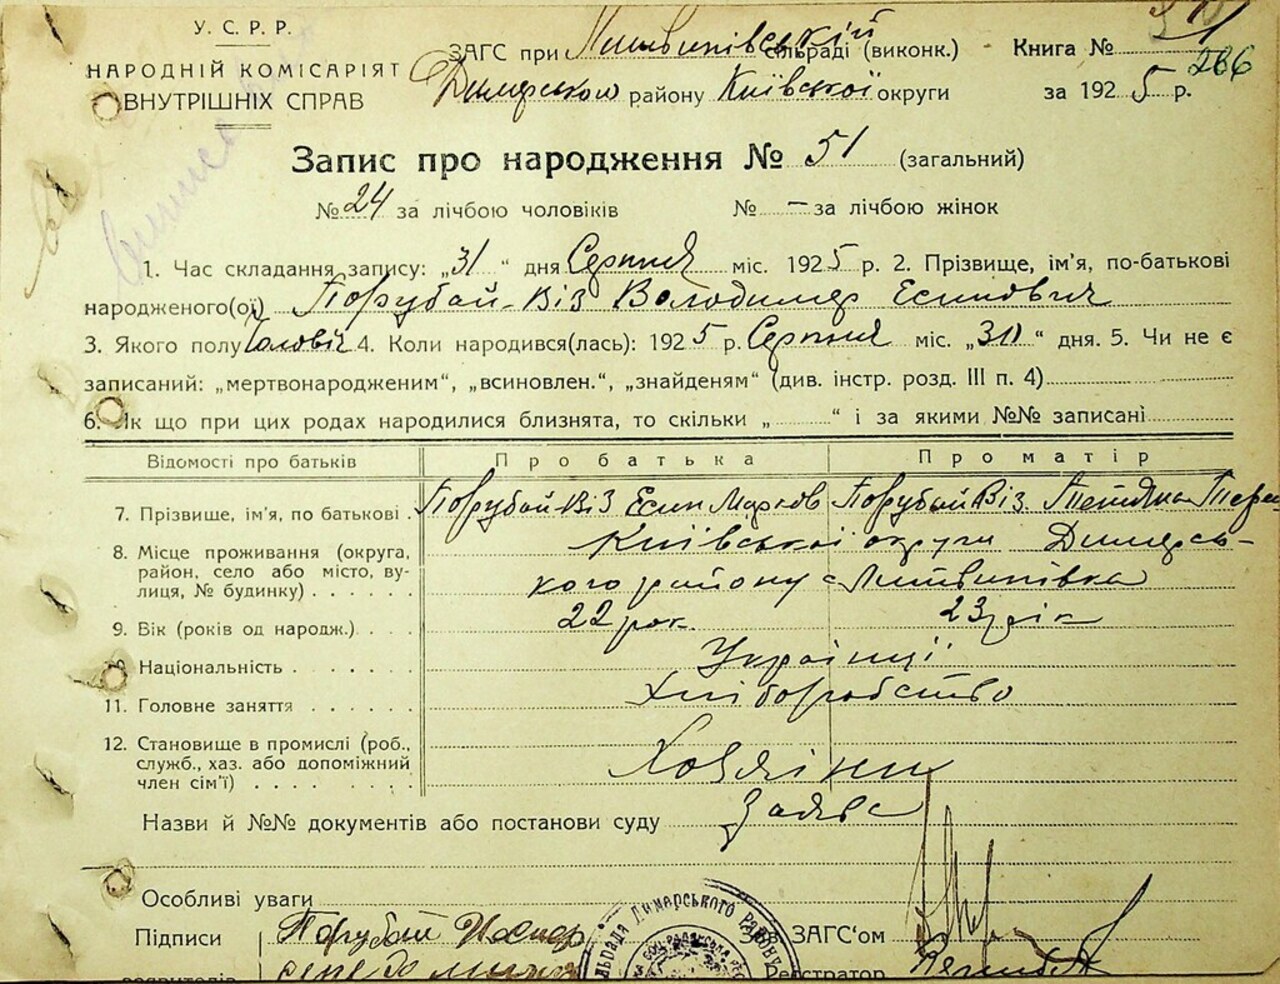 У. С. Р. Р.
НАРОДНІЙ КОМІСАРІЯТ
ВНУТРІШНІХ СПРАВ
ЗАГС при Литвинівській сільраді (виконк.)
Димерського району Київської округи
Книга №
266
за 1925 р.
Запис про народження № 51 (загальний)
№ 24 за лічбою чоловіків № – за лічбою жінок
1. Час складання запису: „31“ дня Серпня міс. 1925 р. 2. Прізвище, ім’я, по-батькові
народженого(ої) Порубай-Віз Володимер Есипович
3. Якого полу Чоловіч 4. Коли народився(лась): 1925 р. Серпня міс. „30“ дня. 5. Чи не є
записаний: „мертвонародженим“, „всиновлен.“, „знайденям“ (див. інстр. розд. III п. 4)
6. Як що при цих родах народилися близнята, то скільки „ “ і за якими №№ записані
Відомості про батьків Про батька Про матір
7. Прізвище, ім’я, по батькові Порубай-Віз Есип Марков Порубай Віз Тетяна
8. Місце проживання (округа, район, село або місто, ву-
лиця, № будинку) Київської округи Димерсь-
кого району с Литвинівка
9. Вік (років од народж.) 22 рок. 23 рік
Національність Українці
11. Головне заняття Хліборобство
12. Становище в промислі (роб.,
служб., хаз. або допоміжний
член сім’ї) Хозяїни
Назви й №№ документів або постанови суду Заява
Особливі уваги
Підписи Порубай
ЗАГС‘ом
Реєстратор
Димерського Району